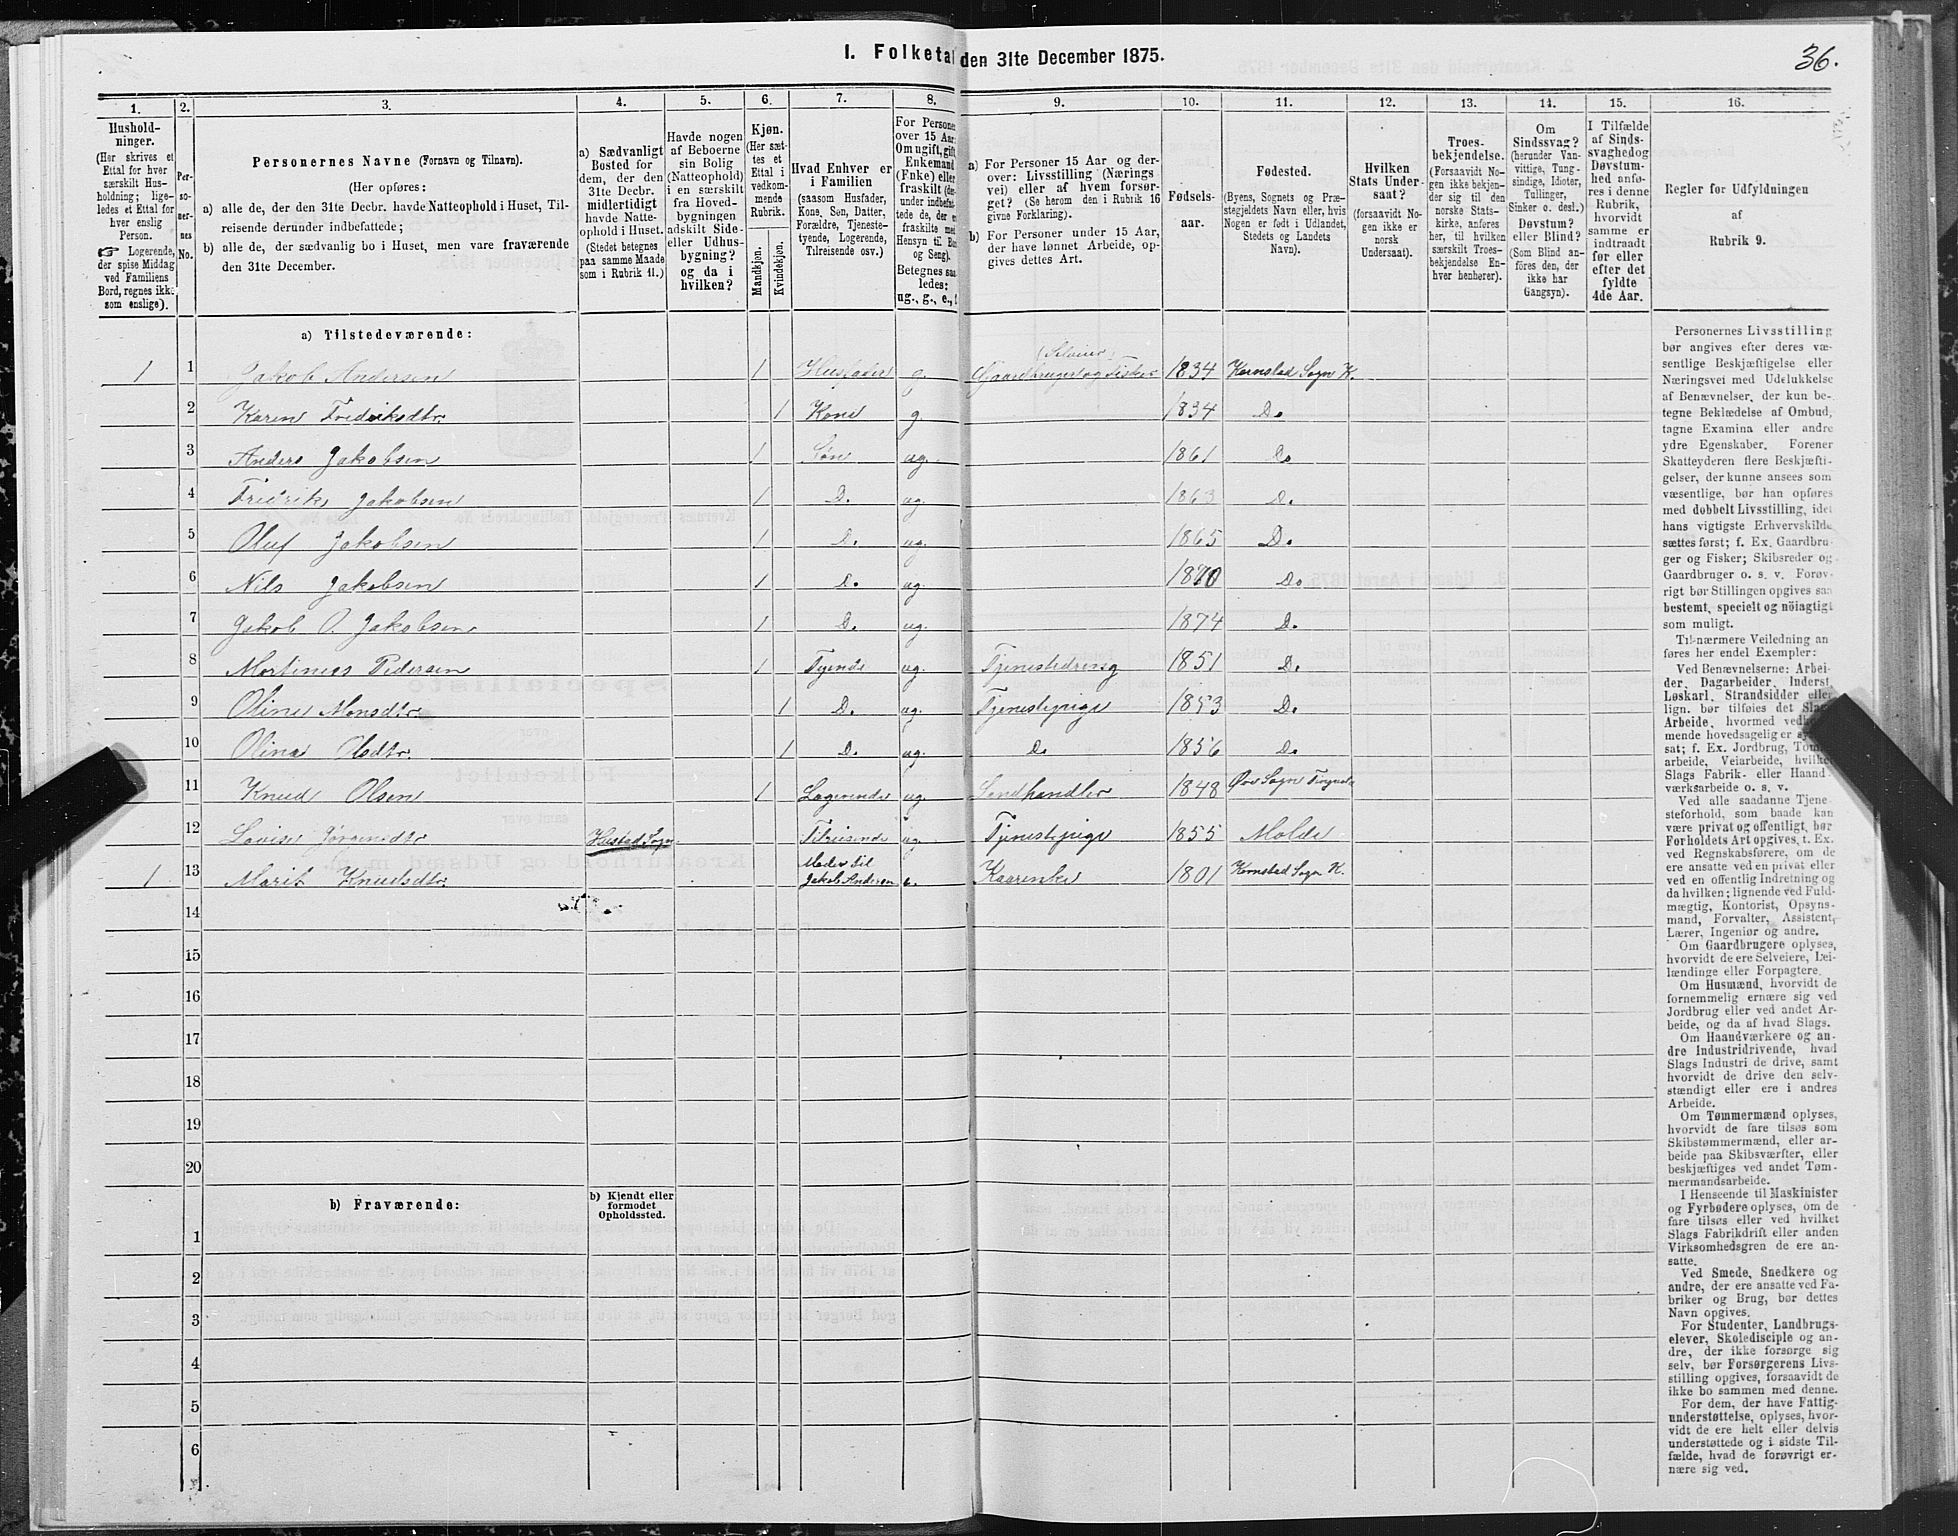 I. Folketal den 31te December 1875.
36.
1. 2. 3. 4. 5. 6. 7. 8. 9. 10. 11. 12. 13. 14. 15. 16.
Hushold-
ninger.
(Her skrives et
Ettal for hver
særskilt Hus-
holdning; lige-
ledes et Ettal for
hver enslig
Person.
☞ Logerende,
der spise Middag
ved Familiens
Bord, regnes ikke
som enslige).
Per-
so-
ner-
nes
No.
Personernes Navne (Fornavn og Tilnavn).
(Her opføres:
a) alle de, der den 31te Decbr. havde Natteophold i Huset, Til-
reisende derunder indbefattede;
b) alle de, der sædvanlig bo i Huset, men vare fraværende
den 31te December.
a) Sædvanligt
Bosted for
dem, der den
31te Decbr.
midlertidigt
havde Natte-
ophold i Huset.
(Stedet betegnes
paa samme Maade
som i Rubrik 11.)
Havde nogen
af Beboerne
sin Bolig
(Natteophold)
i en særskilt
fra Hoved-
bygningen
adskilt Side-
eller Udhus-
bygning?
og da i
hvilken?
Kjøn.
(Her sæt-
tes et
Ettal i
vedkom-
mende
Rubrik.
Mandkjøn.
Kvindekjøn.
Hvad Enhver er
i Familien
(saasom Husfader,
Kone, Søn, Datter,
Forældre, Tjeneste-
tyende, Logerende,
Tilreisende osv.)
For Personer
over 15 Aar:
Om ugift, gift
Enkemand
(Enke) eller
fraskilt (der-
under indbefat-
tede de, der er
fraskilte med
Hensyn til Bord
og Seng).
Betegnes saa-
ledes:
ug., g., e., f.
a) For Personer 15 Aar og der-
over: Livsstilling (Nærings
vei) eller af hvem forsør-
get? (Se herom den i Rubrik 16
givne Forklaring).
b) For Personer under 15 Aar,
der have lønnet Arbeide, op-
gives dettes Art.
Fødsels-
aar.
Fødested.
(Byens, Sognets og Præ-
stegjeldets Navn eller, hvis
Nogen er født i Udlandet,
Stedets og Landets
Navn).
Hvilken
Stats Under-
saat?
(forsaavidt No-
gen ikke er
norsk
Undersaat).
Troes-
bekjendelse.
(Forsaavidt No-
gen ikke bekjen-
der sig til den
norske Stats-
kirke, anføres
her, til hvilken
særskilt Troes-
bekjendelse En-
hver henhører).
Om
Sindssvag?
(herunder Van-
vittige, Tung-
sindige, Idioter,
Tullinger,
Sinker o. desl.)
Døvstum?
eller Blind?
(Som Blind an-
føres den, der
ikke har
Gangsyn).
I Tilfælde
af Sinds-
svaghed og
Døvstum-
hed anfø-
res i denne
Rubrik,
hvorvidt
samme er
indtraadt
før eller
efter det
fyldte
4de Aar.
Regler for Udfyldningen
af
Rubrik 9.
a) Tilstedeværende:
(Selveier)
1 1 Jakob Andersen 1 Husfader g. Gaardbruger og Fisker 1834 Kornstad Sogn K.
2 Karen Fredriksdtr. 1 Kone g. 1834 Do
3 Anders Jakobsen 1 Søn ug. 1861 Do
4 Fredrik Jakobsen 1 D. ug. 1863 D.
5 Oluf Jakobsen 1 D. ug. 1865 D.
6 Nils Jakobsen 1 D. ug. 1870 Do
7 Jakob O. Jakobsen 1 D. ug. 1874 D.
8 Mortinus Pedersen 1 Tyende ug. Tjenestedreng 1851 D.
9 Oline Monsdtr. 1 D. ug. Tjenestepige 1853 D.
10 Olina Olsdtr. 1 D. ug. D. 1856 D.
11 Knud Olsen 1 Logerende ug. Landhandler 1848 Øre Sogn Tingvold
12 Lovise Jørgensdtr Hustad Sogn Tilreisende ug. Tjenestepige 1855 Molde
1 13 Marit Knudsdtr. Moder til Jakob Andersen e. Kaarenke 1801 Kornstad Sogn K.
14
15
16
17
18
19
20
b) Fraværende:
b) Kjendt eller
formodet
Opholdssted.
1
2
3
4
5
6
Personernes Livsstilling
bør angives efter deres væ-
sentlige Beskjæftigelse eller
Næringsvei med Udelukkelse
af Benævnelser, der kun be-
tegne Beklædelse af Ombud,
tagne Examina eller andre
ydre Egenskaber. Forener
Skatteyderen flere Beskjæfti-
gelser, der kunne ansees som
væsentlige, bør han opføres
med dobbelt Livsstilling, idet
hans vigtigste Erhvervskilde
sættes først; f. Ex. Gaardbru-
ger og Fisker; Skibsreder og
Gaardbruger o. s. v. Forøv-
rigt bør Stillingen opgives saa
bestemt, specielt og nöiagtigt
som muligt.
Til nærmere Veiledning an
føres her endel Exempler:
Ved Benævnelserne: Arbei-
der, Dagarbeider, Inderst,
Løskarl, Strandsidder eller
lign. bør tilføies det Slags
Arbeide, hvormed vedkom-
mende hovedsagelig er syssel-
sat; f. Ex. Jordbrug, Tømmer-
arbeide, Veiarbeide, hvilket
Slags Fabrik- eller Haand-
værksarbeide o. s. v.
Ved alle saadanne Tjene
steforhold, som baade kan
være privat og offentligt, bør
Forholdets Art opgives, t. Ex.
ved Regnskabsførere, om de
ere ansatte ved en privat eller
ved en offentlig Indretning og
da hvilken; lignende ved Fuld-
mægtig, Kontorist, Opsyns-
mand, Forvalter, Assistent,
Lærer, Ingeniør og andre.
Om Gaardbrugere oplyses,
hvorvidt de ere Selveiere, Lei-
lændinge eller Forpagtere.
Om Husmænd, hvorvidt de
fornemmelig ernære sig ved
Jordbrug eller ved andet Ar-
beide, og da af hvad Slags.
Om Haandværkere og an-
dre Industridrivende, hvad
Slags Industri de drive, samt
hvorvidt de drive den selv-
stændigt eller ere i andres
Arbeide.
Om Tømmermænd oplyses,
hvorvidt de fare tilsøs som
Skibstømmermænd, eller ar-
beide paa Skibsværfter, eller
beskjæftiges ved andet Tøm-
mermandsarbeide.
I Henseende til Maskinister
og Fyrbødere oplyses, om de
fare tilsøs eller ved hvilket
Slags Fabrikdrift eller anden
Virksomhedsgren de ere an-
satte.
Ved Smede, Snedkere og
andre, der ere ansatte ved Fa-
briker og Brug, bør dettes
Navn opgives.
For Studenter, Landbrugs-
elever, Skoledisciple og an-
dre, der ikke forsørge sig
selv, bør Forsørgerens Livs-
stilling opgives, forsaavidt de
ikke bo sammen med denne.
For dem, der have Fattig-
understøttelse, oplyses, hvor-
vidt de ere helt eller delvis
understøttede og i sidste Til-
fælde, hvad de forøvrigt er-
nære sig ved.